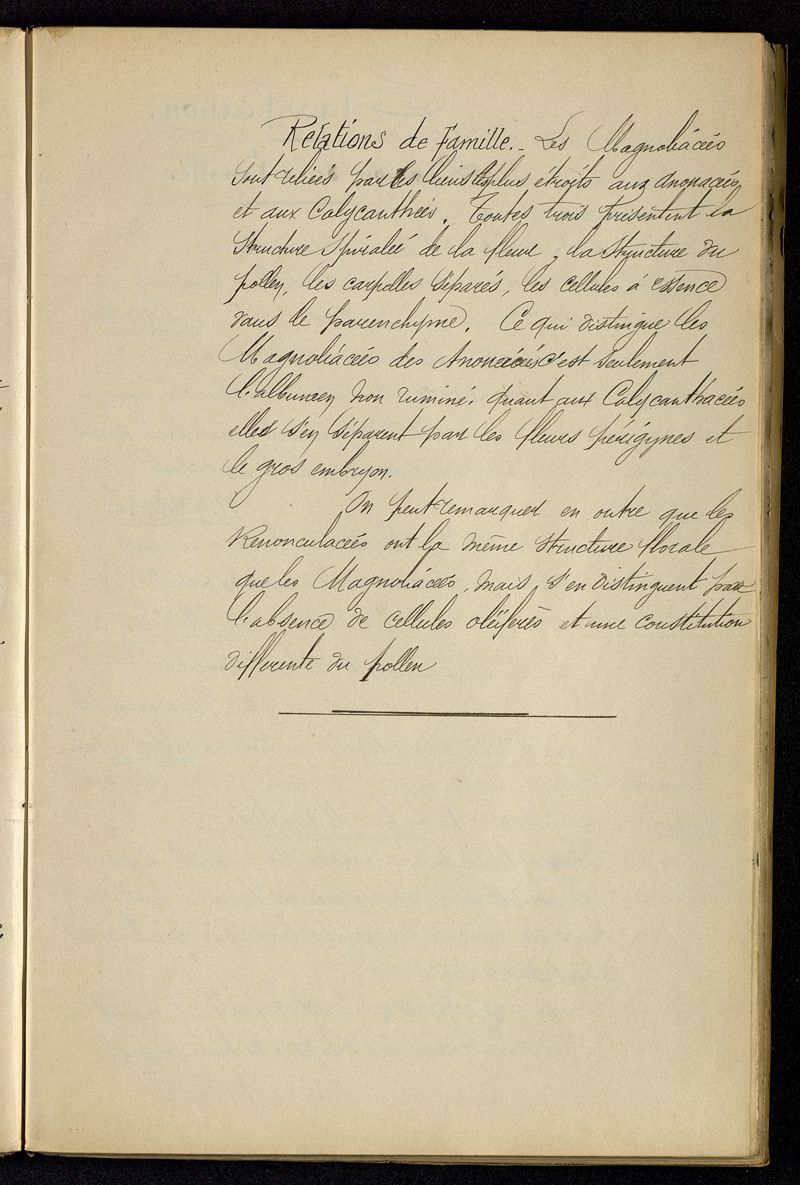 Relations de Famille. _ Les Magnoliacées
sont reliées par les liens les plus étroits aux Anonacées
et aux Calycanthées. Toutes trois présentent la
structure spiralée de la fleur, la structure du
pollen, les carpelles séparés, les cellules à essence
dans le parenchyme. Ce qui distingue les
Magnoliacées des Anonacées c'est seulement
l'albumen non ruminé. quant aux Calycanthacées
elles s'en séparent par les fleurs périgynes et
le gros embryon.
On peut remarquer en outre que les
Renonculacées ont la même structure florale
que les Magnoliacées, mais s'en distinguent par
l'absence de cellules oléifères et une constitution
différente du pollen